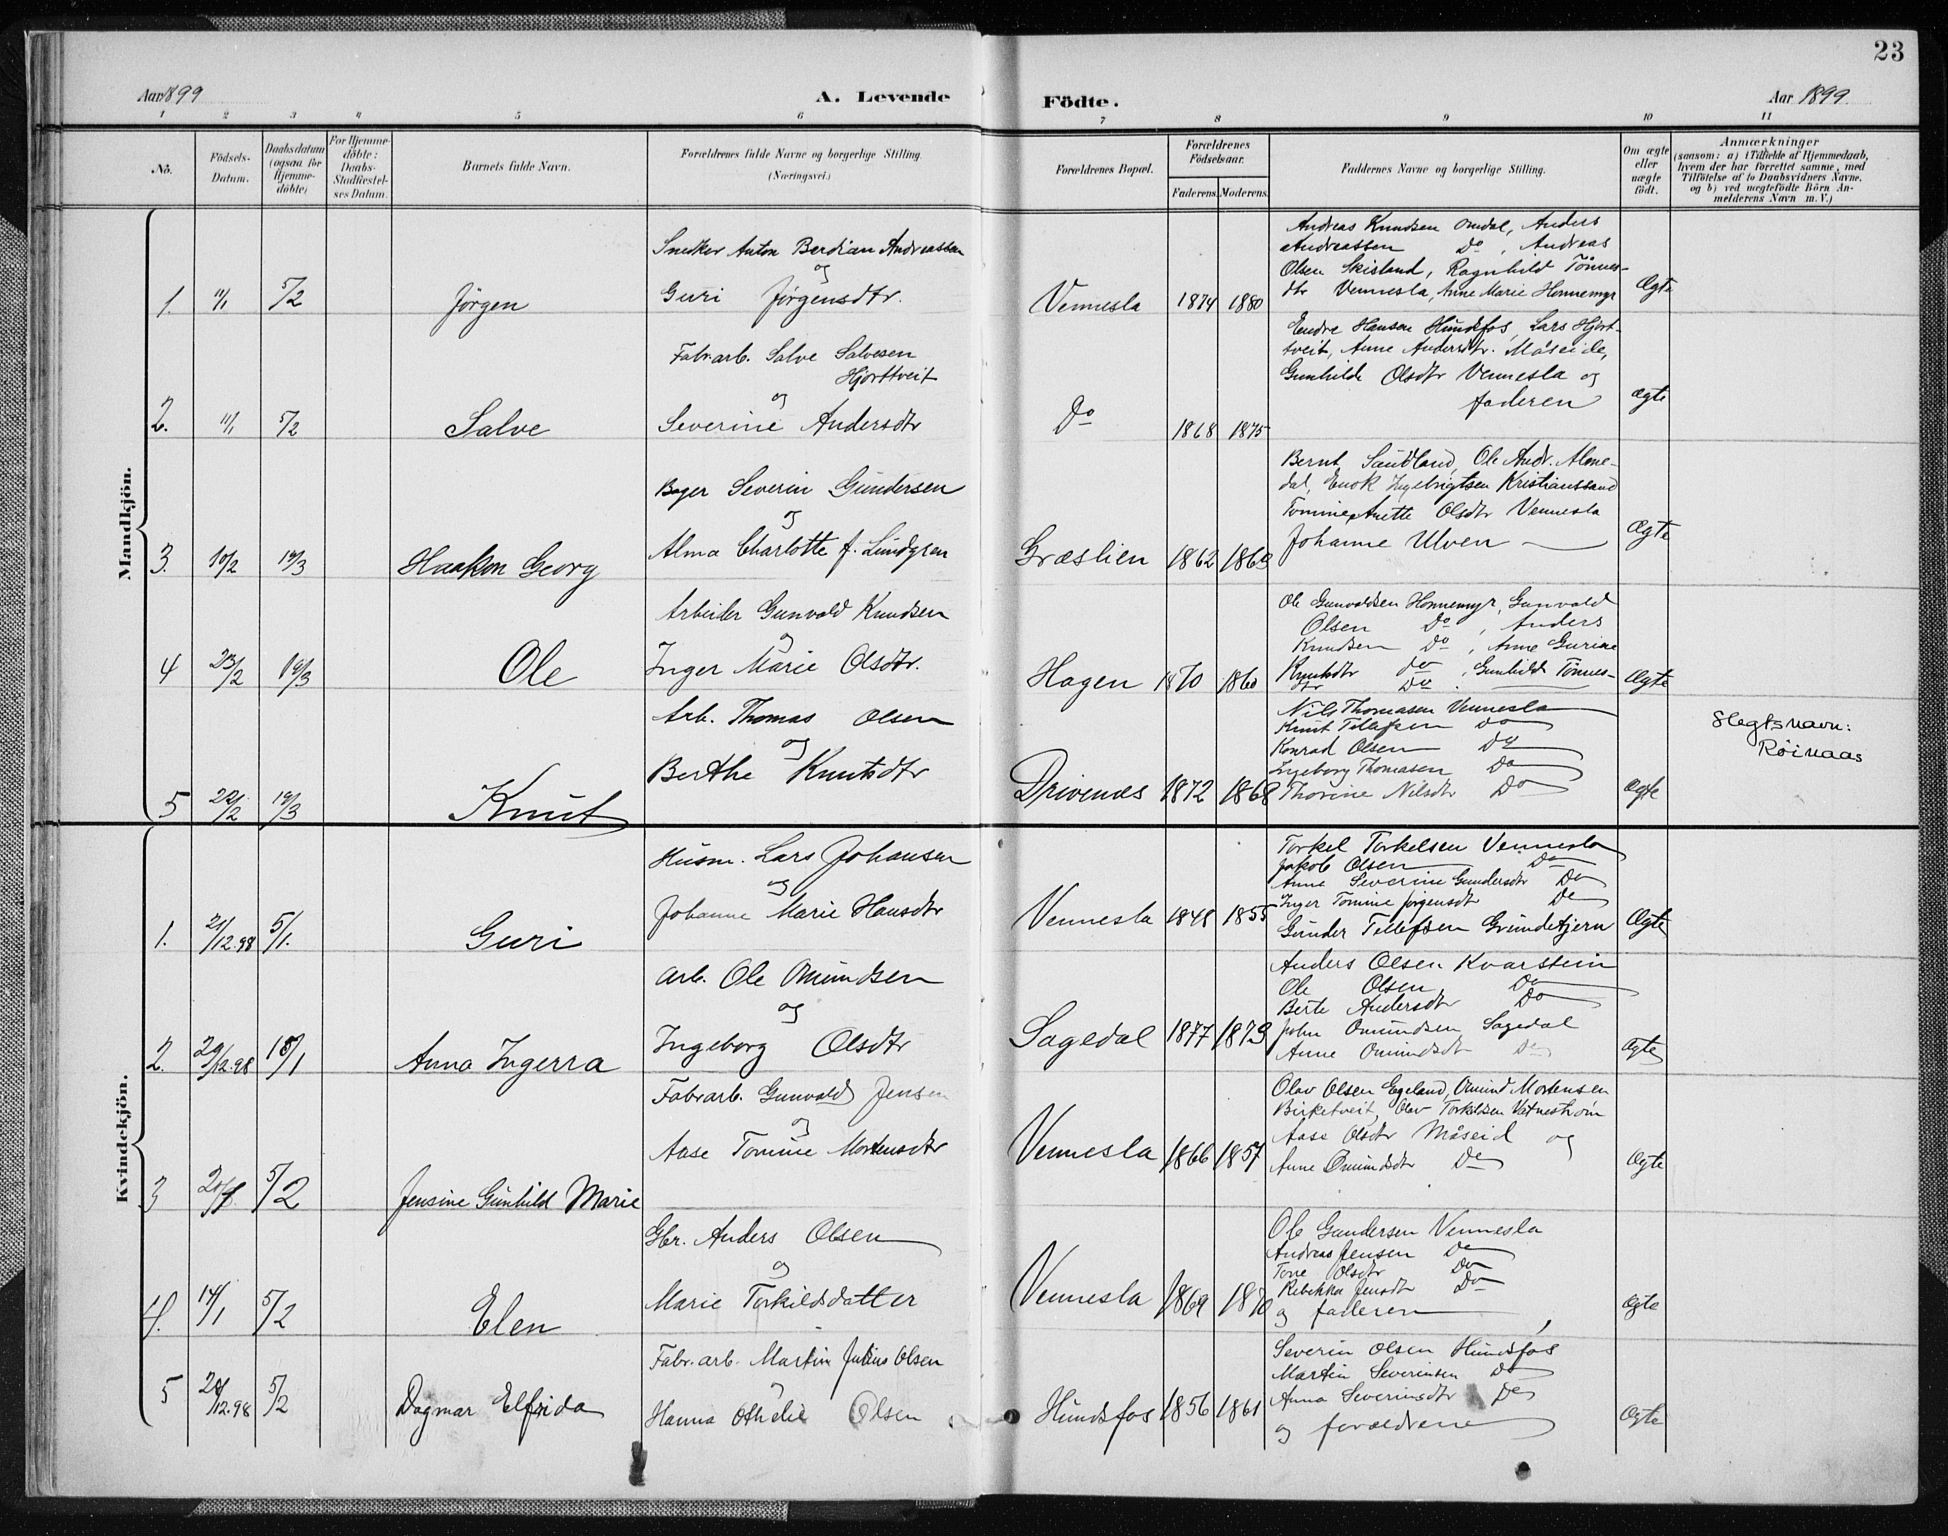 23
Aar 1899
A. Levende
Födte.
Aar 1899
1 2 3 4 5 6 7 8 9 10 11
No.
Födsels-
Datum.
Daabsdatum
(ogsaa for
Hjemme-
döbte)
For Hjemme-
döbte:
Daabs-
Stadfæstel-
ses Datum.
Barnets fulde Navn.
Forældrenes fulde Navne og borgerlige Stilling.
(Næringsvei.)
Forældrenes Bopæl.
Forældrenes
Födselsaar.
Faderens. Moderens.
Faddernes Navne og borgerlige Stilling.
Om ægte
eller
uægte
födt.
Anmærkninger
(saasom: a) i Tilfælde af Hjemmedaab,
hvem der har forrettet samme, med
Tilföielse af to Daabsvidners Navne,
og b) ved uægtefödte Börn An-
melderens Navn m. V.)
Mandkjön.
1. 11/1 5/2 Jørgen
Snedker Anton Berdian Andreassen
og
Guri Jørgensdtr.
Vennesla 1874 1880
Andreas Knudsen Omdal, Anders
Andreassen Do, Andreas
Olsen Skisland, Ragnhild Tønnes-
dtr Vennesla, Anne Marie Honnemyr
Ægte
2. 11/1 5/2 Salve
Fabrarb. Salve Salvesen
Hjorttveit
og
Severine Andersdtr
Do 1868 1875
Endre Hansen Hundsfos, Lars Hjort-
tveit, Anne Andersdtr. Måseide,
Gunhilde Olsdtr Vennesla og
faderen
ægte
3. 10/2 19/3 Haakon Georg
Bager Severin Gundersen
og
Alma Charlotte f. Lundgren
Græslien 1862 1860
Bernt Sandland, Ole Andr. Alme-
dal, Enok Ingebrigtsen Kristianssand
Tomine Anette Olsdtr Vennesla
Johanne Ulven —
Ægte
4 23/2 19/3 Ole
Arbeider Gunvald Knudsen
og
Inger Marie Olsdtr.
Hagen 1870 1860
Ole Gunvaldsen Honnemyr, Gunvald
Olsen Do, Anders
Knudsen Do, Anne Gurine
Knutsdtr do, Gunhild Tønnes-
dtr Do.
Ægte
5 22/2 19/3 Knut
Arb. Thomas Olsen
og
Berthe Knutsdtr
Drivenes 1872 1868
Nils Thomasen Vennesla
Knut Tellefsen do
Konrad Olsen Do
Ingeborg Thomasen Do
Thorine Nilsdtr Do
Ægte
Slegtsnavn:
Røinaas
Kvindekjön.
1. 21/12.98 5/1. Guri
Husm. Lars Johansen
og
Johanne Marie Hansdtr
Vennesla 1848 1855
Torkel Torkelsen Vennesla
Jakob Olsen Do
Anna Severine Gundersdtr Do
Inger Tomine Jørgensdt Do
Gunder Tellefsen Grundetjern
Ægte
2. 29/12.98 15/1 Anna Ingerra
Arb. Ole Omundsen
og
Ingeborg Olsdtr
Sagedal 1877 1879
Anders Olsen Kvarstein
Ole Olsen Do
Berte Andersdtr Do
John Omundsen Sagedal
Anne Omundsdt Do
Ægte
3 5/2 Jensine Gunhild Marie
Fabrarb. Gunvald Jensen
og
Aase Tomine Mortensdtr
Vennesla 1866 1857
Olav Olsen Egeland, Omund Mortensen
Birketveit, Olav Torkelsen Vatnestrøm
Aase Olsdtr Måseid og
Anne Omundsdtr Do
Ægte
4. 14/1 5/2 Elen
Gbr. Anders Olsen
og
Marie Torkildsdatter
Vennesla 1869 1870
Ole Gundersen Vennesla
Andreas Jensen Do
Tone Olsdtr Do
Rebekka Jensdt Do
og faderen
Ægte
5 5/2 Dagmar Elfrida
Fabr.arb. Martin Julius Olsen
Hanna Othelie Olsen
Hundsfos 1856 1861
Severin Olsen Hundsfos
Martin Severinsen Do
Anna Severinsdtr Do
og forældrene
Ægte